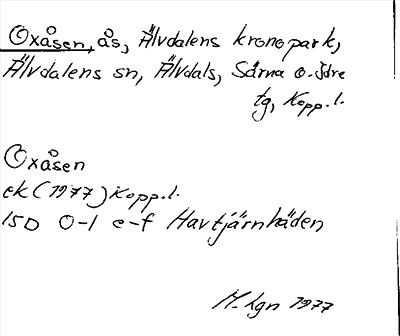 Oxåsen, ås, Älvdalens kronopark,
Älvdalens sn, Älvdals, Särna o. Idre
tg, Kopp. l.
Oxåsen
ek (1977) Kopp. l.
15D 0-1 e-f Havtjärnhäden
M. hgn 1977